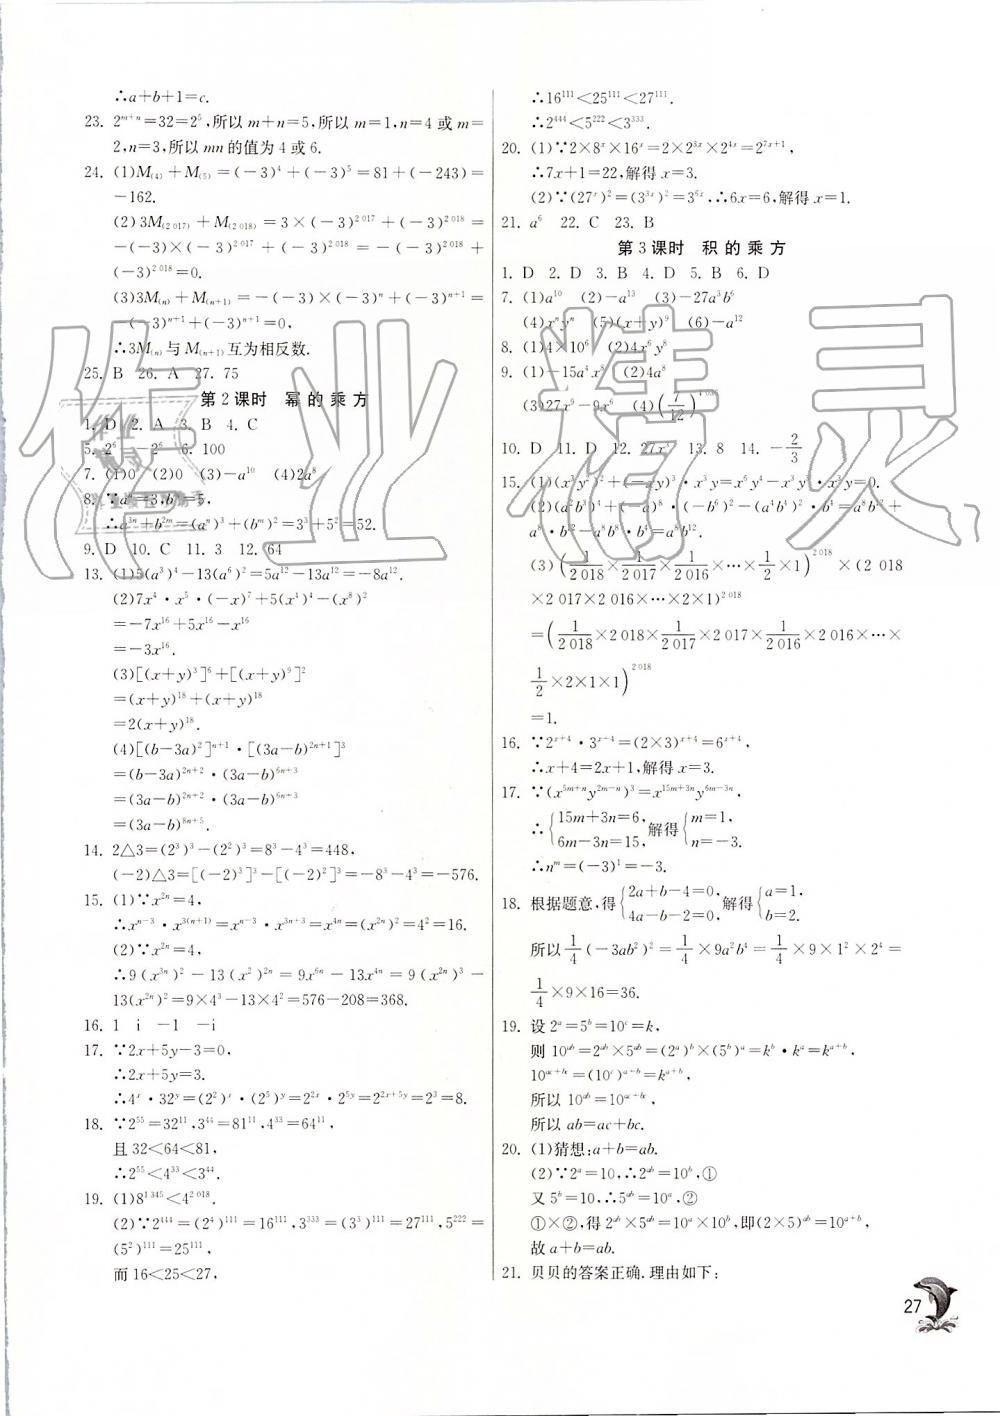 ∴a+b+1=c.
23. 2^{m+n}=32=2^5,所以 m+n=5,所以 m=1,n=4 或 m=
2,n=3,所以 mn 的值为 4 或 6.
24. (1)M_{(4)}+M_{(5)}=(-3)^4+(-3)^5=81+(-243)=
-162.
(2)3M_{(2 017)}+M_{(2 018)}=3×(-3)^{2 017}+(-3)^{2 018}=
-(-3)×(-3)^{2 017}+(-3)^{2 018}=-(-3)^{2 018}+
(-3)^{2 018}=0.
(3)3M_{(n)}+M_{(n+1)}=-(-3)×(-3)^n+(-3)^{n+1}=
-(-3)^{n+1}+(-3)^{n+1}=0,
∴3M_{(n)}与M_{(n+1)}互为相反数.
25. B 26. A 27. 75
第 2 课时 幂的乘方
1. D 2. A 3. B 4. C
5. 2^6 -2^6 6. 100
7. (1)0 (2)0 (3)-a^{10} (4)2a^8
8. ∵a^n=3,b^m=5,
∴a^{3n}+b^{2m}=(a^n)^3+(b^m)^2=3^3+5^2=52.
9. D 10. C 11. 3 12. 64
13. (1)5(a^3)^4-13(a^6)^2=5a^{12}-13a^{12}=-8a^{12}.
(2)7x^4·x^5·(-x)^7+5(x^4)^4-(x^8)^2
=-7x^{16}+5x^{16}-x^{16}
=-3x^{16}.
(3)[(x+y)^3]^6+[(x+y)^9]^2
=(x+y)^{18}+(x+y)^{18}
=2(x+y)^{18}.
(4)[(b-3a)^2]^{n+1}·[(3a-b)^{2n+1}]^3
=(b-3a)^{2n+2}·(3a-b)^{6n+3}
=(3a-b)^{2n+2}·(3a-b)^{6n+3}
=(3a-b)^{8n+5}.
14. 2△3=(2^3)^3-(2^2)^3=8^3-4^3=448,
(-2)△3=[(-2)^3]^3-[(-2)^2]^3=-8^3-4^3=-576.
15. (1)∵x^{2n}=4,
∴x^{n-3}·x^{3(n+1)}=x^{n-3}·x^{3n+3}=x^{4n}=(x^{2n})^2=4^2=16.
(2)∵x^{2n}=4,
∴9(x^{3n})^2-13(x^2)^{2n}=9x^{6n}-13x^{4n}=9(x^{2n})^3-
13(x^{2n})^2=9×4^3-13×4^2=576-208=368.
16. 1 i -1 -i
17. ∵2x+5y-3=0,
∴2x+5y=3.
∴4^x·32^y=(2^2)^x·(2^5)^y=2^{2x}·2^{5y}=2^{2x+5y}=2^3=8.
18. ∵2^{55}=32^{11},3^{44}=81^{11},4^{33}=64^{11},
且 32<64<81,
∴2^{55}<4^{33}<3^{44}.
19. (1)8^{1 345}<4^{2 018}.
(2)∵2^{444}=(2^4)^{111}=16^{111},3^{333}=(3^3)^{111}=27^{111},5^{222}=
(5^2)^{111}=25^{111},
而 16<25<27,
∴16^{111}<25^{111}<27^{111}.
∴2^{444}<5^{222}<3^{333}.
20. (1)∵2×8^x×16^x=2×2^{3x}×2^{4x}=2^{7x+1},
∴7x+1=22,解得 x=3.
(2)∵(27^x)^2=(3^{3x})^2=3^{6x},∴6x=6,解得 x=1.
21. a^6 22. C 23. B
第 3 课时 积的乘方
1. D 2. D 3. B 4. D 5. B 6. D
7. (1)a^{10} (2)-a^{13} (3)-27a^3b^6
(4)x^ny^n (5)(x+y)^9 (6)-a^{12}
8. (1)4×10^6 (2)4x^6y^8
9. (1)-15a^4x^8 (2)4a^8
(3)27x^9-9x^6
10. D 11. D 12. 27x^6 13. 8 14. -\frac{2}{3}
15. (1)(x^3y^2)^2+(-xy)^3·x^3y=x^6y^4-x^3y^3·x^3y=0.
(2)(a^2b^3)^4+(-a)^8·(-b^6)^2-(a^4b^4)^2·b^4=a^8b^{12}+
a^8·b^{12}-a^8b^8·b^4=a^8b^{12}.
(3)(\frac{1}{2 018}×\frac{1}{2 017}×\frac{1}{2 016}×…×\frac{1}{2}×1)^{2 018}×(2 018
×2 017×2 016×…×2×1)^{2 018}
=(\frac{1}{2 018}×2 018×\frac{1}{2 017}×2 017×\frac{1}{2 016}×2 016×…×
\frac{1}{2}×2×1×1)^{2 018}
=1.
16. ∵2^{x+4}·3^{x+4}=(2×3)^{x+4}=6^{x+4},
∴x+4=2x+1,解得 x=3.
17. ∵(x^{5m+n}y^{2m-n})^3=x^{15m+3n}y^{6m-3n},
∴{15m+3n=6, 6m-3n=15, 解得{m=1, n=-3.
∴n^m=(-3)^1=-3.
18. 根据题意,得{2a+b-4=0, 4a-b-2=0, 解得{a=1, b=2.
所以\frac{1}{4}(-3ab^2)^2=\frac{1}{4}×9a^2b^4=\frac{1}{4}×9×1^2×2^4=
\frac{1}{4}×9×16=36.
19. 设 2^a=5^b=10^c=k,
则 10^{ab}=2^{ab}×5^{ab}=(2^a)^b×(5^b)^a=k^b·k^a=k^{a+b},
10^{ac+bc}=(10^c)^{a+b}=k^{a+b},
所以 10^{ab}=10^{ac+bc},
所以 ab=ac+bc.
20. (1)猜想:a+b=ab.
(2)∵2^a=10,∴2^{ab}=10^b,①
又 5^b=10,∴5^{ab}=10^a,②
①×②,得 2^{ab}×5^{ab}=10^a×10^b,即(2×5)^{ab}=10^{a+b},
故 a+b=ab.
21. 贝贝的答案正确.理由如下:
27
作业精灵